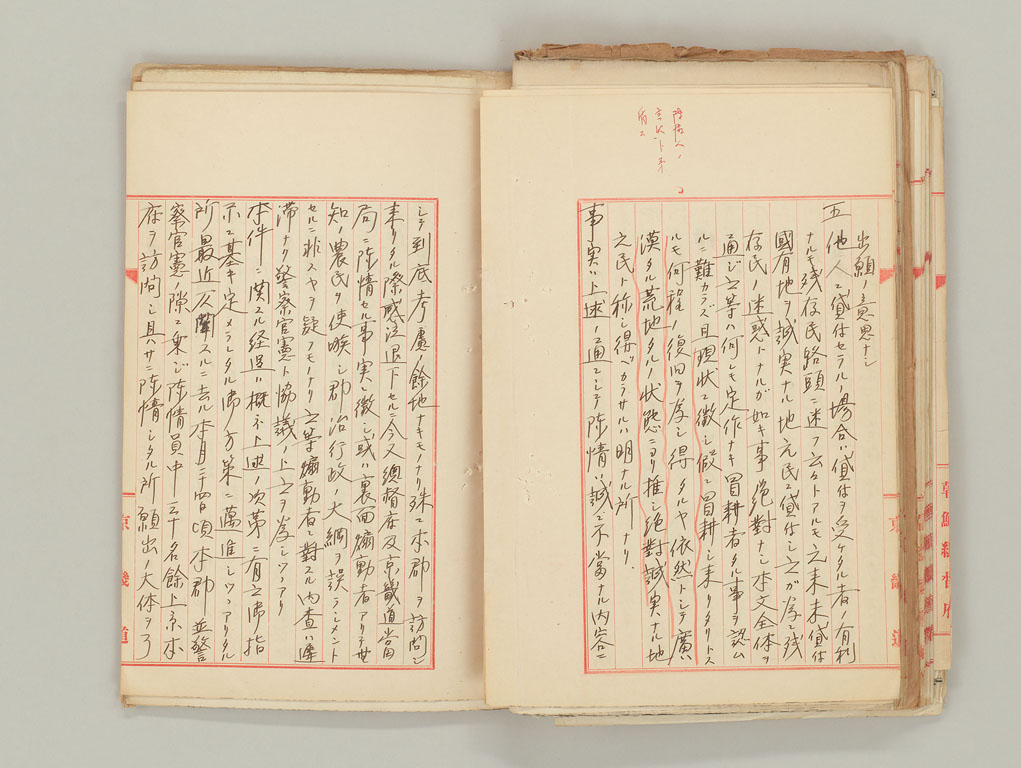 出願ノ意思ナシ
五 他人ニ貸付セラルノ場合ハ貸付ヲ受ケタル者ハ有利
ナルモ残存民路頭ニ迷フ云々トアルモ之未未貸付
國有地ヲ誠実ナル地元民ニ貸付シ之ガ為シ残
存民ノ迷惑トナルガ如キ事絶對ナシ本文全体ヲ
通ジ之等ハ何レモ定作ナキ冒耕者タル事ヲ認ム
ルニ難カラズ且現状ニ徴シ假ニ冒耕シ来リタリトス
ルモ何程ノ復旧ヲ為シ得タルヤ依然トシテ廣
漠タル荒地タルノ状態ニヨリ推シ絶對誠実ナル地
元民ト称シ得ベカラサルハ明ナル所ナリ
事実ハ上述ノ通ニシテ陳情ハ誠ニ不當ナル内容ニ
シテ到底考慮ノ餘地ナキモノナリ殊ニ本郡ヲ訪問シ
来リタル際感泣退下セルニ今又總督府及京畿道當
局ニ陳情セル事実ニ徴シ或ハ裏面煽動者アリテ無
知ノ農民ヲ使嗾シ郡治行政ノ大綱ヲ誤ラシメント
セルニ非スヤヲ疑フモノナリ之等煽動者ニ對スル内査ハ遅
滞ナリ警察官憲ト協議ノ上之ヲ為シツヽアリ
本件ニ関スル経過ハ概ネ上述ノ次第ニ有之御指
示ニ基キ定メラレタル御方策ニ邁進シツヽアリタル
所最近仄聞スルニ去ル本月二十四日頃本郡並警
察官憲ノ隙ニ乗ジ陳情員中三十名餘上京本
府ヲ訪問シ具ハサニ陳情シタル所願出ノ大体ヲ了
朝鮮總督府
京畿道
京畿道